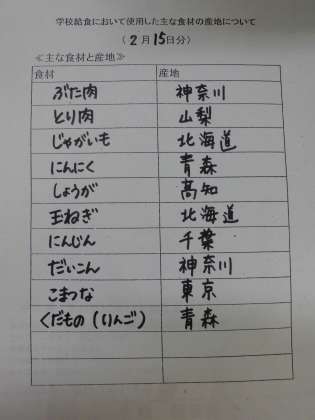 学校給食において使用した主な食材の産地について
（2月15日分）
≪主な食材と産地≫
食材 産地
ぶた肉 神奈川
とり肉 山梨
じゃがいも 北海道
にんにく 青森
しょうが 高知
玉ねぎ 北海道
にんじん 千葉
だいこん 神奈川
こまつな 東京
くだもの（りんご） 青森